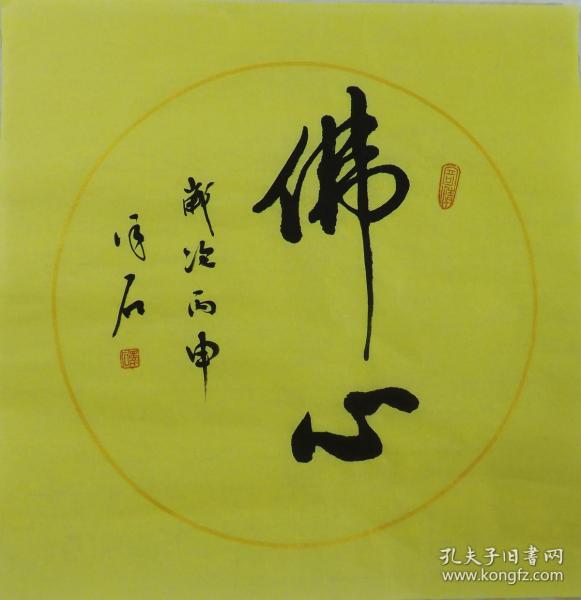 佛心
歲次丙申
石
孔夫子旧书网
www.kongfz.com